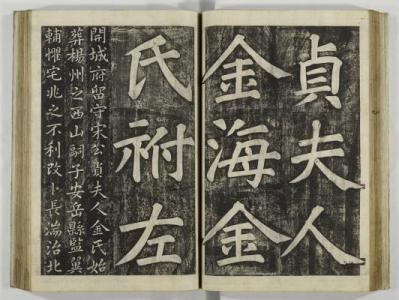 貞夫人
金海金
氏祔左
開城府留守宋公貞夫人金氏始
葬楊州之西山嗣子安岳縣監巽
輔懼宅兆之不利改卜長湍治北